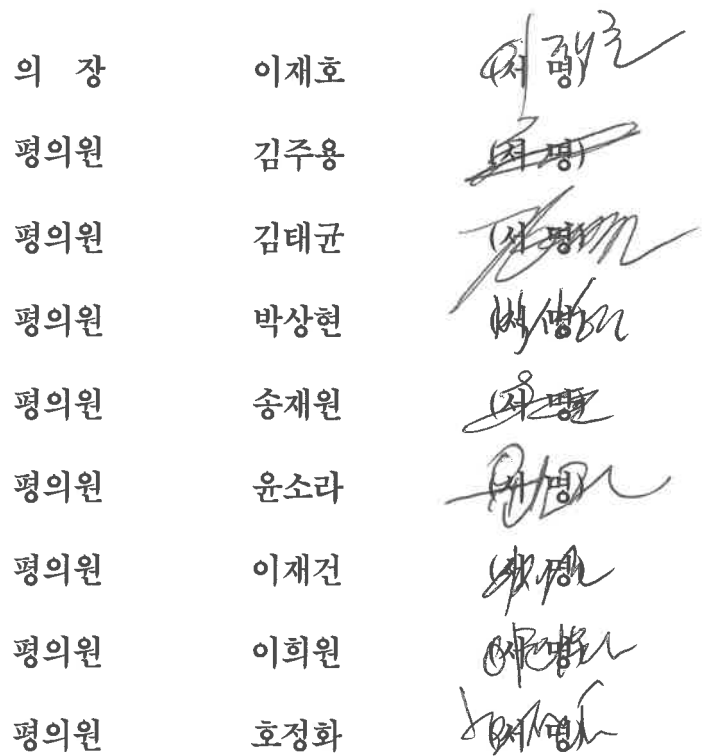 의 장 이재호 (서 명)
평의원 김주용 (서 명)
평의원 김태균 (서 명)
평의원 박상현 (서 명)
평의원 송재원 (서 명)
평의원 윤소라 (서 명)
평의원 이재건 (서 명)
평의원 이희원 (서 명)
평의원 호정화 (서 명)